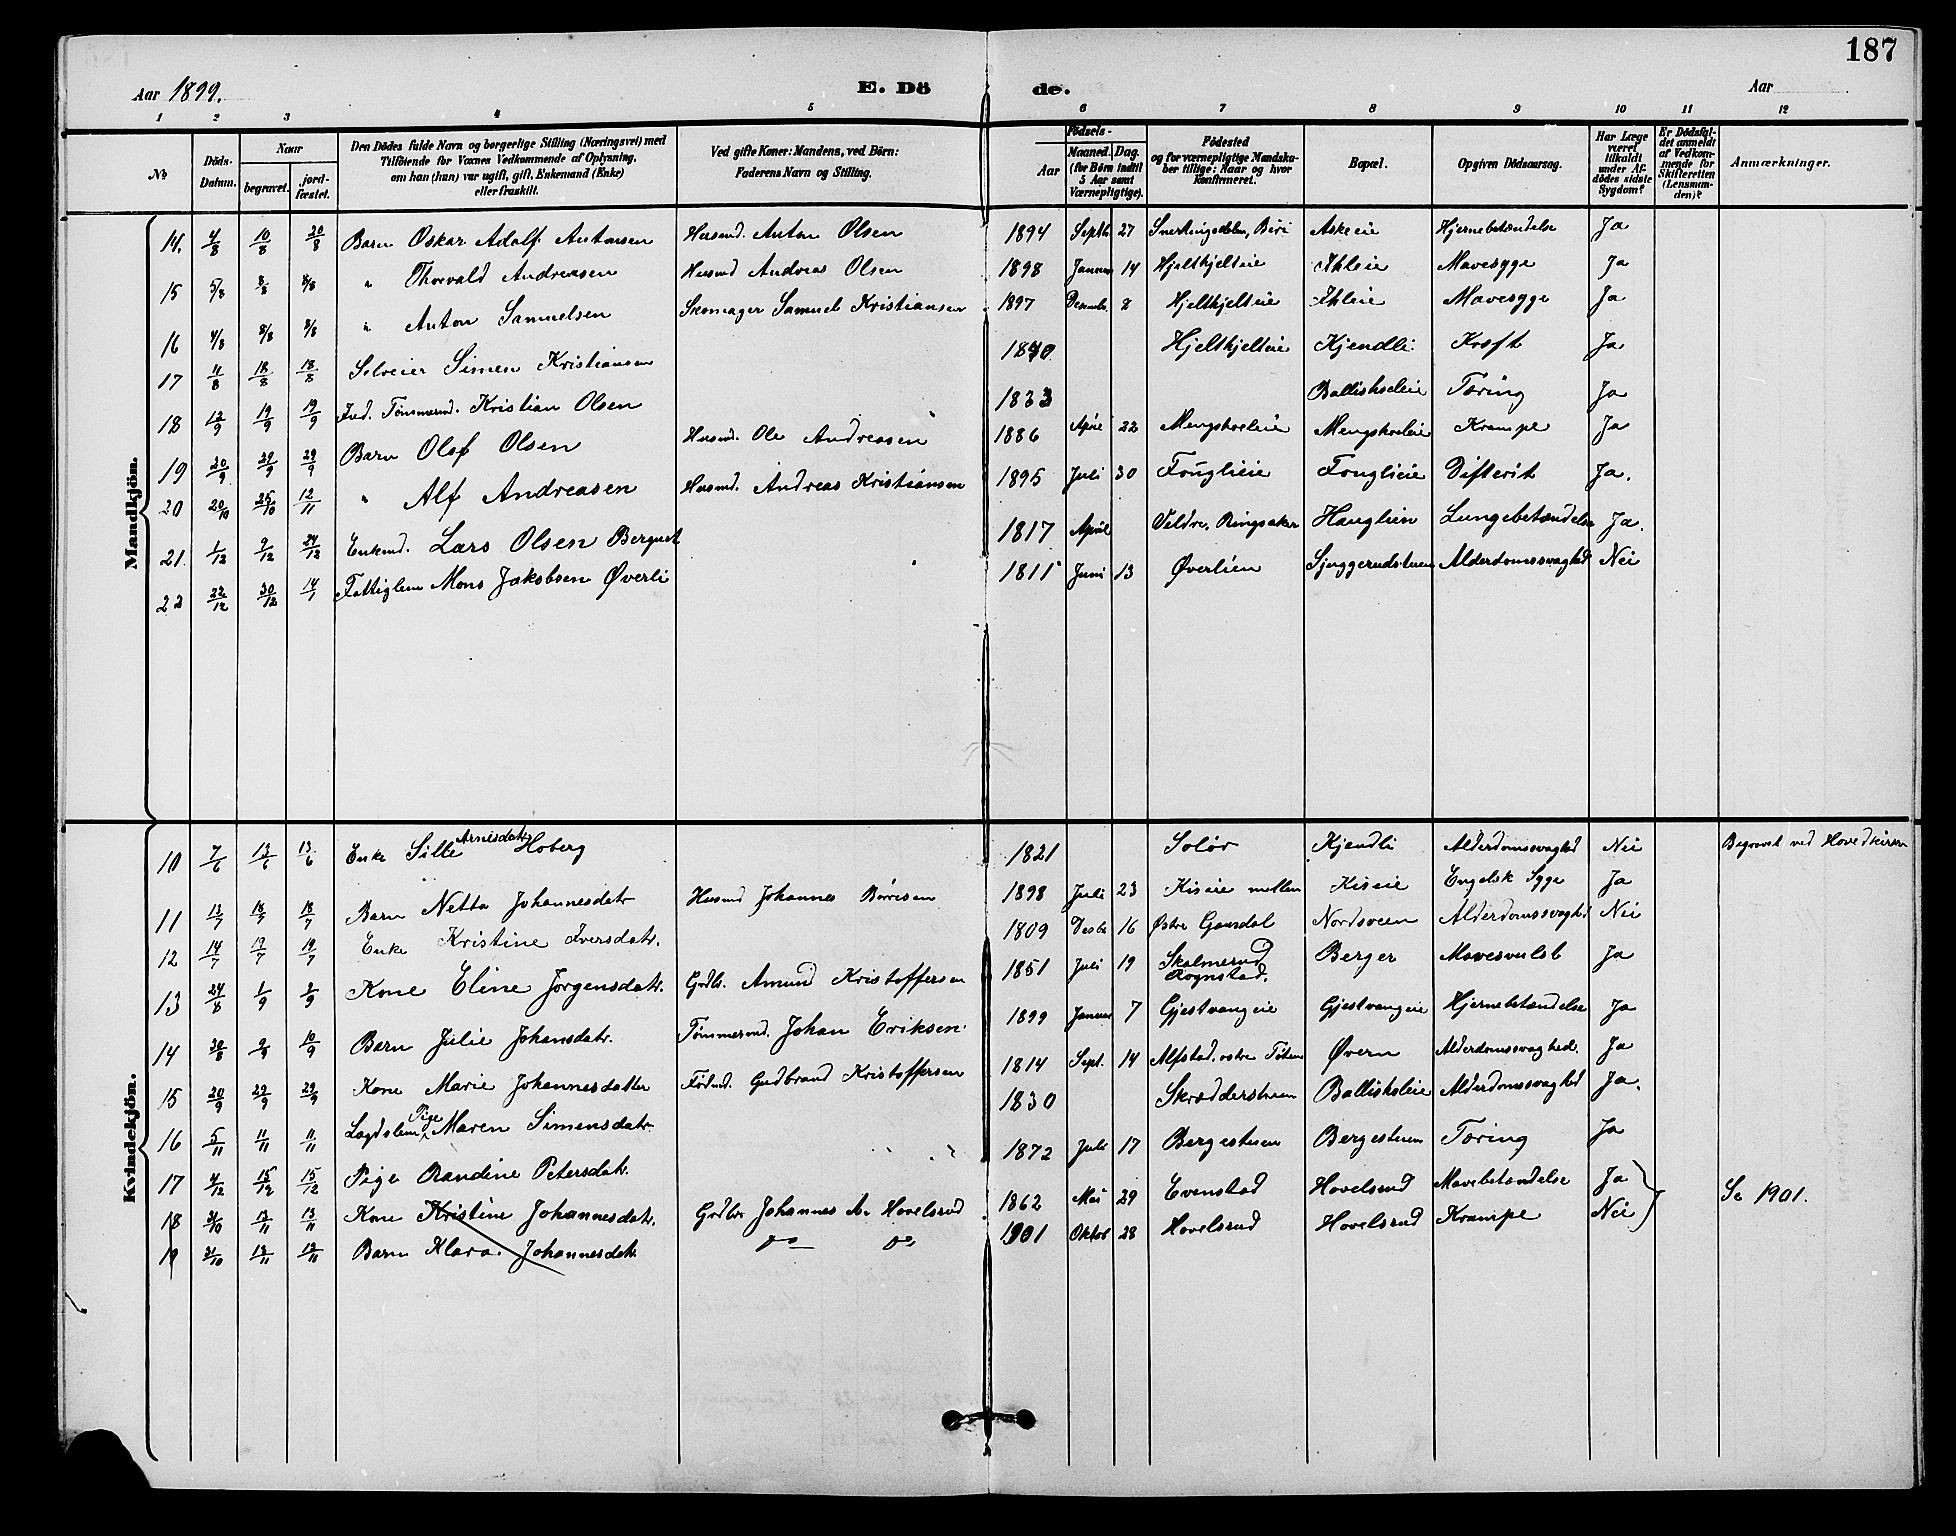 187
Aar 1899. E. Dö de. Aar
1 2 3 4 5 6 7 8 9 10 11 12
No Döds-Datum. Naar begravet. jord-fæstet. Den Dödes fulde Navn og borgerlige Stilling (Næringsvei) med Tilföiende for Voxnes Vedkommende af Oplysning, om han (hun) var ugift, gift, Enkemand (Enke) eller fraskilt. Ved gifte Koner: Mandens, ved Börn: Faderens Navn og Stilling. Födsels- Aar Maaned. Dag. (for Börn indtil 5 Aar samt Værnepligtige). Födested og for værnepligtige Mandska-ber tillige: Naar og hvor konfirmeret. Bopæl. Opgiven Dödsaarsag. Har Læge været tilkaldt under Af-dödes sidste Sygdom? Er Dödsfal-det anmeldt af Vedkom-mende for Skifteretten (Lensman-den)? Anmærkninger.
Mandkjön.
14. 4/8 10/8 20/8 Barn Oskar Adolf Antonsen Husmd. Anton Olsen 1894 Septb. 27 Snertingsdalen, Biri Askeeie Hjernebetændelse Ja
15 5/8 8/8 8/8 " Thorvald Andreasen Husmd Andreas Olsen 1898 Januar 14 Hjeltkjelteie Ihleie Mavesyge Ja
16 4/8 8/8 8/8 " Anton Samuelsen Skomager Samuel Kristiansen 1897 Decembr. 8 Hjeltkjelteie Ihleie Mavesyge Ja
17 11/8 18/8 18/8 Selveier Simen Kristiansen 1840 Hjeltkjelteie Kjendli Kræft Ja
18 12/9 19/9 19/9 Ind. Tømmermd. Kristian Olsen 1833 Ballishøleie Tæring Ja
19 20/9 29/9 29/9 Barn Olof Olsen Husmd. Ole Andreasen 1886 April 22 Mengshoeleie Mengshoeleie Krampe Ja
20 20/10 25/10 12/11 " Alf Andreasen Husmd. Andreas Kristiansen 1895 Juli 30 Fouglieie Fouglieie Difterit Ja.
21. 1/12 9/12 24/12 Enkemd. Lars Olsen Berguet 1817 April Veldre, Ringsaker Hauglien Lungebetændelse Ja.
22 22/12 30/12 14/1 Fattiglem Mons Jakobsen Øverli 1811 Juni 13 Øverlien Sjuggerudstuen Alderdomssvaghed Nei
Kvindekjön.
10 7/6 13/6 13/6 Enke Sille Arnesdatr Hoberg 1821 Solør Kjendli Alderdomssvaghed Nei Begravet ved Hovedkirken
11 13/7 18/7 18/7 Barn Netta Johannesdatr Husmd Johannes Børresen 1898 Juli 23 Kiseie mellem Kiseie Engelsk Syge Ja
12 14/7 19/7 19/7 Enke Kristine Iversdatr. 1809 Desbr 16 Østre Gausdal Nordsveen Alderdomssvaghed Nei
13 24/8 1/9 1/9 Kone Eline Jørgensdatr. Grdbr. Amund Kristoffersen 1851 Juli 19 Skolmerud Rognstad. Berger Mavesvulst Ja
14 30/8 9/9 10/9 Barn Julie Johansdatr. Tømmermd. Johan Eriksen 1899 Januar 7 Gjestvangeie Gjestvangeie Hjernebetændelse Ja
15 20/9 29/9 29/9 Kone Marie Johannesdatter Fødmd. Gudbrand Kristoffersen 1814 Sept. 14 Alfstad, østre Toten Øvern Alderdomssvaghed. Ja
16 5/11 11/11 11/11 Lægdslem, Pige Maren Simensdatr. 1830 Skrædderstuen Ballishøleie Alderdomssvaghed Ja.
17 4/12 15/12 15/12 Pige Randine Petersdatr. 1872 Juli 17 Bergestuen Bergestuen Tæring Ja
18 31/10 13/11 13/11 Kone Kristine Johannesdatr. Grdbr Johannes A. Hovelsrud 1862 Mai 29 Evenstad Hovelsrud Mavebetændelse Ja Se 1901.
19 31/10 13/11 13/11 Barn Klara Johannesdatr do do 1901 Oktbr 28 Hovelsrud Hovelsrud Krampe Nei